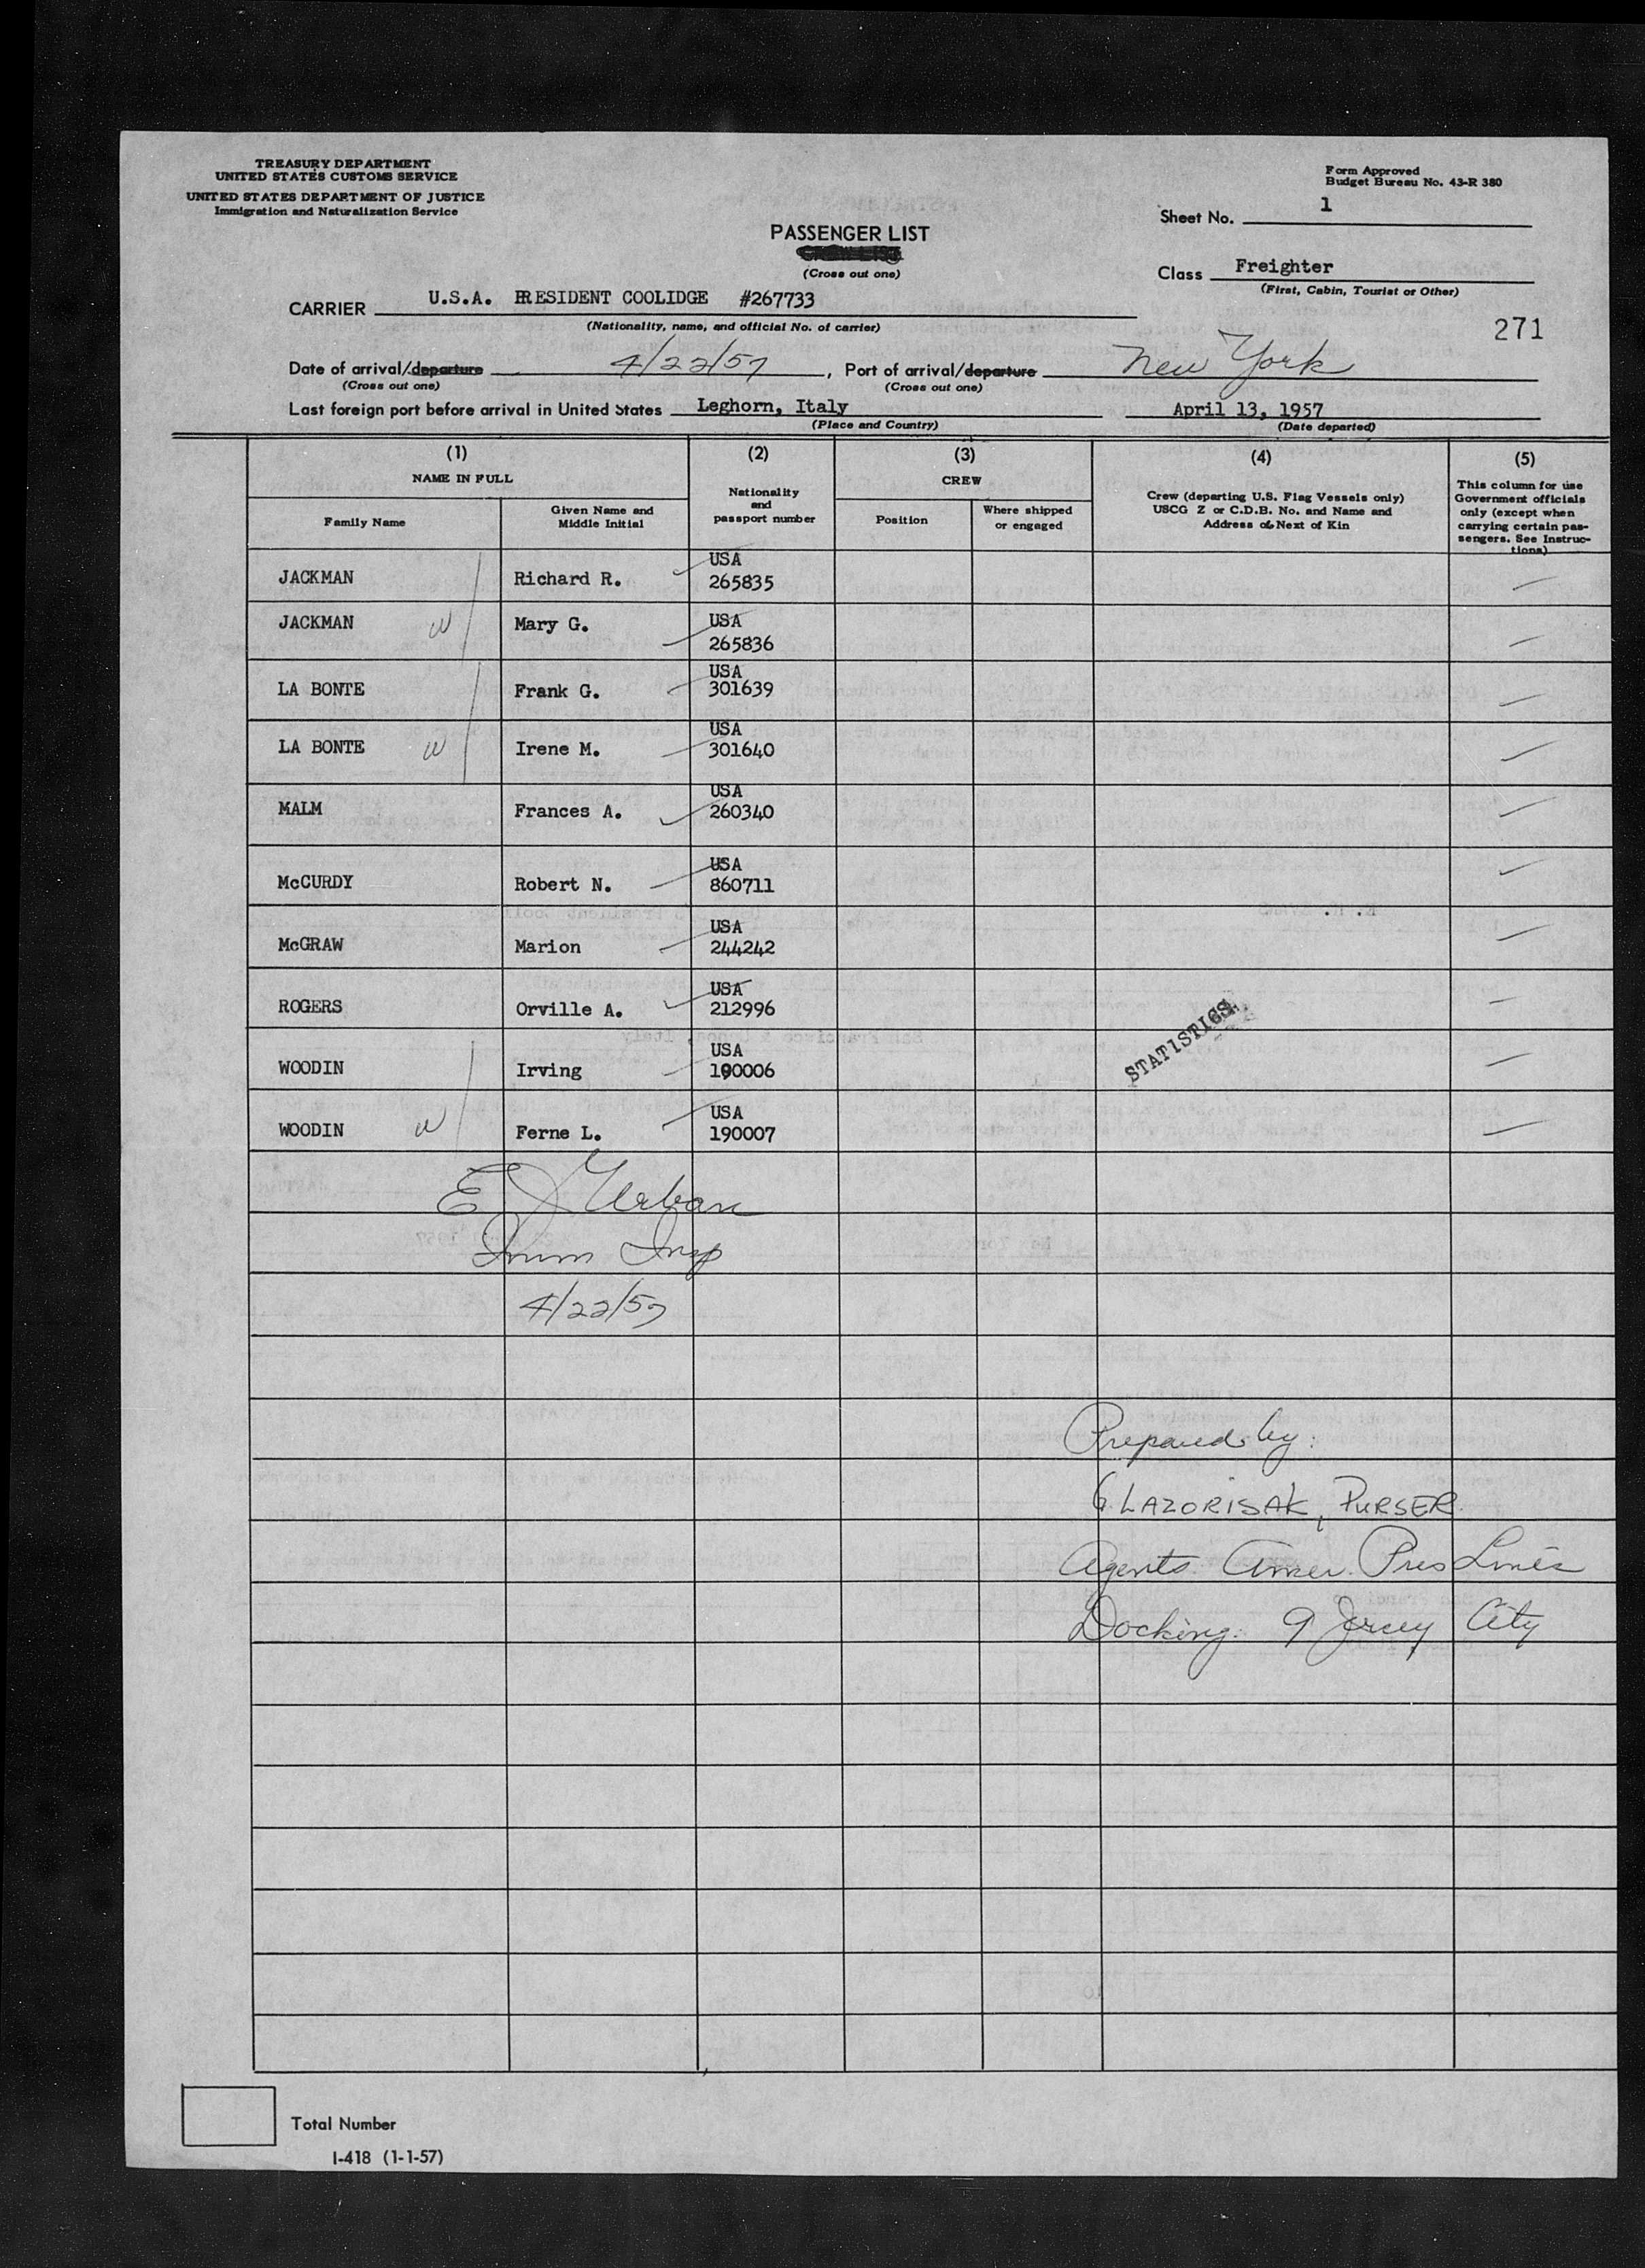 TREASURY DEPARTMENT
UNITED STATES CUSTOMS SERVICE
UNITED STATES DEPARTMENT OF JUSTICE
Immigration and Naturalization Service
Form Approved
Budget Bureau No. 43-R 380
Sheet No. 1
PASSENGER LIST
(Cross out one)
Class Freighter
(First, Cabin, Tourist or Other)
CARRIER U.S.A. PRESIDENT COOLIDGE #267733
(Nationality, name, and official No. of carrier)
271
Date of arrival/departure 4/22/57, Port of arrival/departure New York
(Cross out one) (Cross out one)
Last foreign port before arrival in United States Leghorn, Italy April 13, 1957
(Place and Country) (Date departed)
(1) (2) (3) (4) (5)
NAME IN FULL
Family Name
Given Name and
Middle Initial
Nationality
and
passport number
CREW
Position
Where shipped
or engaged
Crew (departing U.S. Flag Vessels only)
USCG Z or C.D.B. No. and Name and
Address of Next of Kin
This column for use
Government officials
only (except when
carrying certain pas-
sengers. See Instruc-
tions)
JACKMAN Richard R. USA 265835
JACKMAN W Mary G. USA 265836
LA BONTE Frank G. USA 301639
LA BONTE W Irene M. USA 301640
MALM Frances A. USA 260340
McCURDY Robert N. USA 860711
McGRAW Marion USA 244242
ROGERS Orville A. USA 212996
STATISTICS
WOODIN Irving USA 190006
WOODIN W Ferne L. USA 190007
E J Urban
Imm Insp
4/22/57
Prepared by:
G. LAZORISAK, PURSER
Agents Amer. Pres Lines
Docking: 9 Jersey City
Total Number
I-418 (1-1-57)